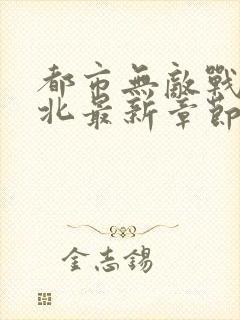 都市無敵戰
北最新章節
金志錫